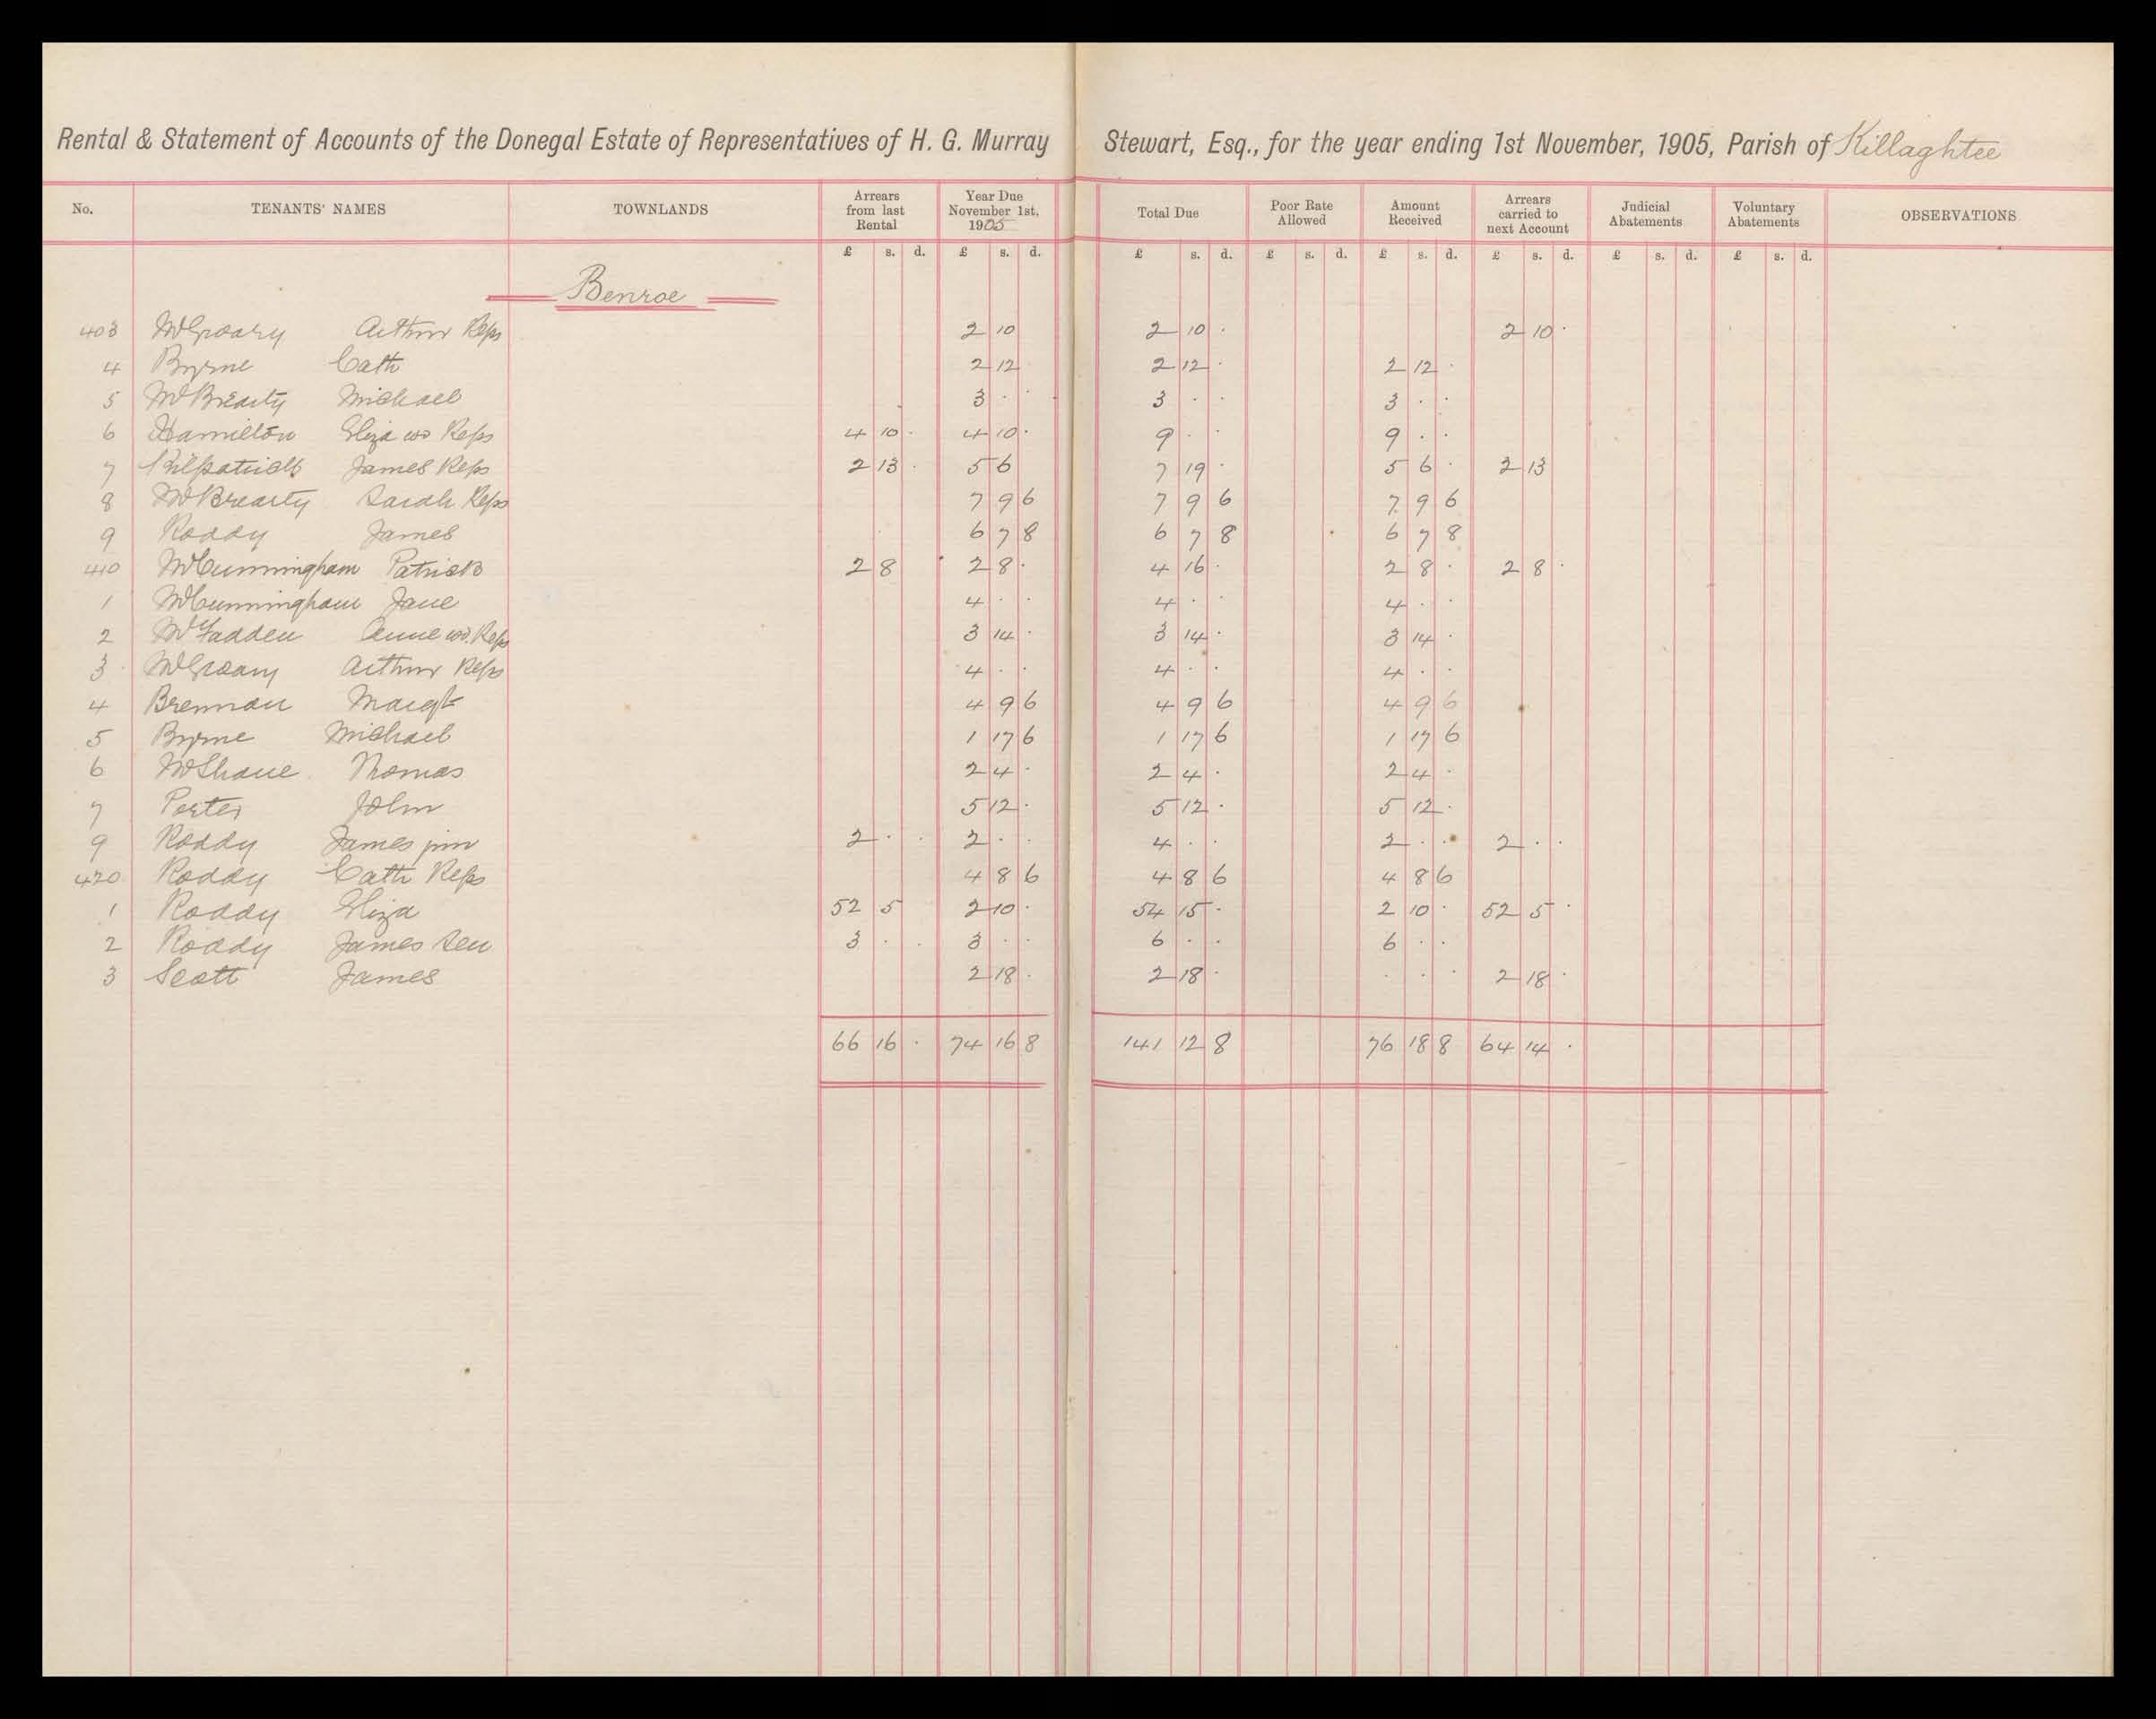 Rental & Statement of Accounts of the Donegal Estate of Representatives of H. G. Murray Stewart, Esq., for the year ending 1st November, 1905, Parish of Killaghtee
No. TENANTS' NAMES TOWNLANDS Arrears from last Rental Year Due November 1st, 1905 Total Due Poor Rate Allowed Amount Received Arrears carried to next Account Judicial Abatements Voluntary Abatements OBSERVATIONS
£ s. d. £ s. d. £ s. d. £ s. d. £ s. d. £ s. d. £ s. d. £ s. d.
Benroe
403 McGroary Arthur Reps 2 10 2 10 · 2 10 ·
4 Byrne Cath 2 12 2 12 · 2 12 ·
5 McBrearty Michael 3 · · 3 · · 3 · ·
6 Hamilton Eliza wd Reps 4 10 · 4 10 · 9 · · 9 · ·
7 Kilpatrick James Reps 2 13 · 5 6 7 19 · 5 6 · 2 13
8 McBrearty Sarah Reps 7 9 6 7 9 6 7 9 6
9 Roddy James 6 7 8 6 7 8 6 7 8
410 McCunningham Patrick 2 8 2 8 · 4 16 · 2 8 · 2 8 ·
1 McCunningham Jane 4 · · 4 · · 4 · ·
2 McFadden Anne wd. Reps 3 14 · 3 14 · 3 14 ·
3 McGroary Arthur Reps 4 · · 4 · · 4 · ·
4 Brennan Margt 4 9 6 4 9 6 4 9 6
5 Byrne Michael 1 17 6 1 17 6 1 17 6
6 McShane Thomas 2 4 · 2 4 · 2 4 ·
7 Porter John 5 12 · 5 12 · 5 12 ·
9 Roddy James jun 2 · · 2 · · 4 · · 2 · · 2 · ·
420 Roddy Cath Reps 4 8 6 4 8 6 4 8 6
1 Roddy Eliza 52 5 2 10 · 54 15 · 2 10 · 52 5 ·
2 Roddy James Sen 3 · · 3 · · 6 · · 6 · ·
3 Scott James 2 18 · 2 18 · · · · 2 18 ·
66 16 · 74 16 8 141 12 8 76 18 8 64 14 ·